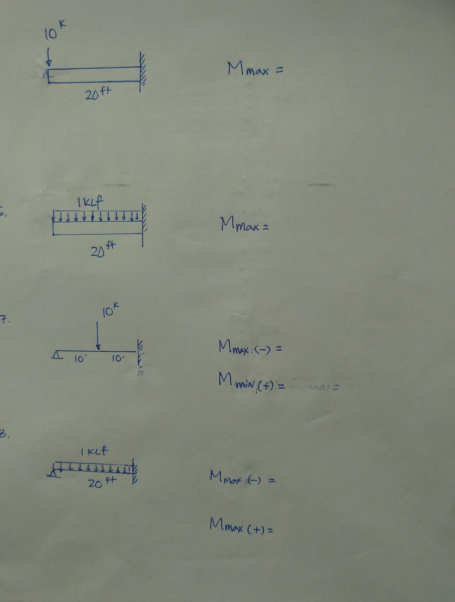 10 K
20 ft
Mmax =
1 KLf
20 ft
Mmax =
7.
10 K
10' 10'
Mmax (-) =
Mmin (+) =
1 KLf
20 ft
Mmax (-) =
Mmax (+) =